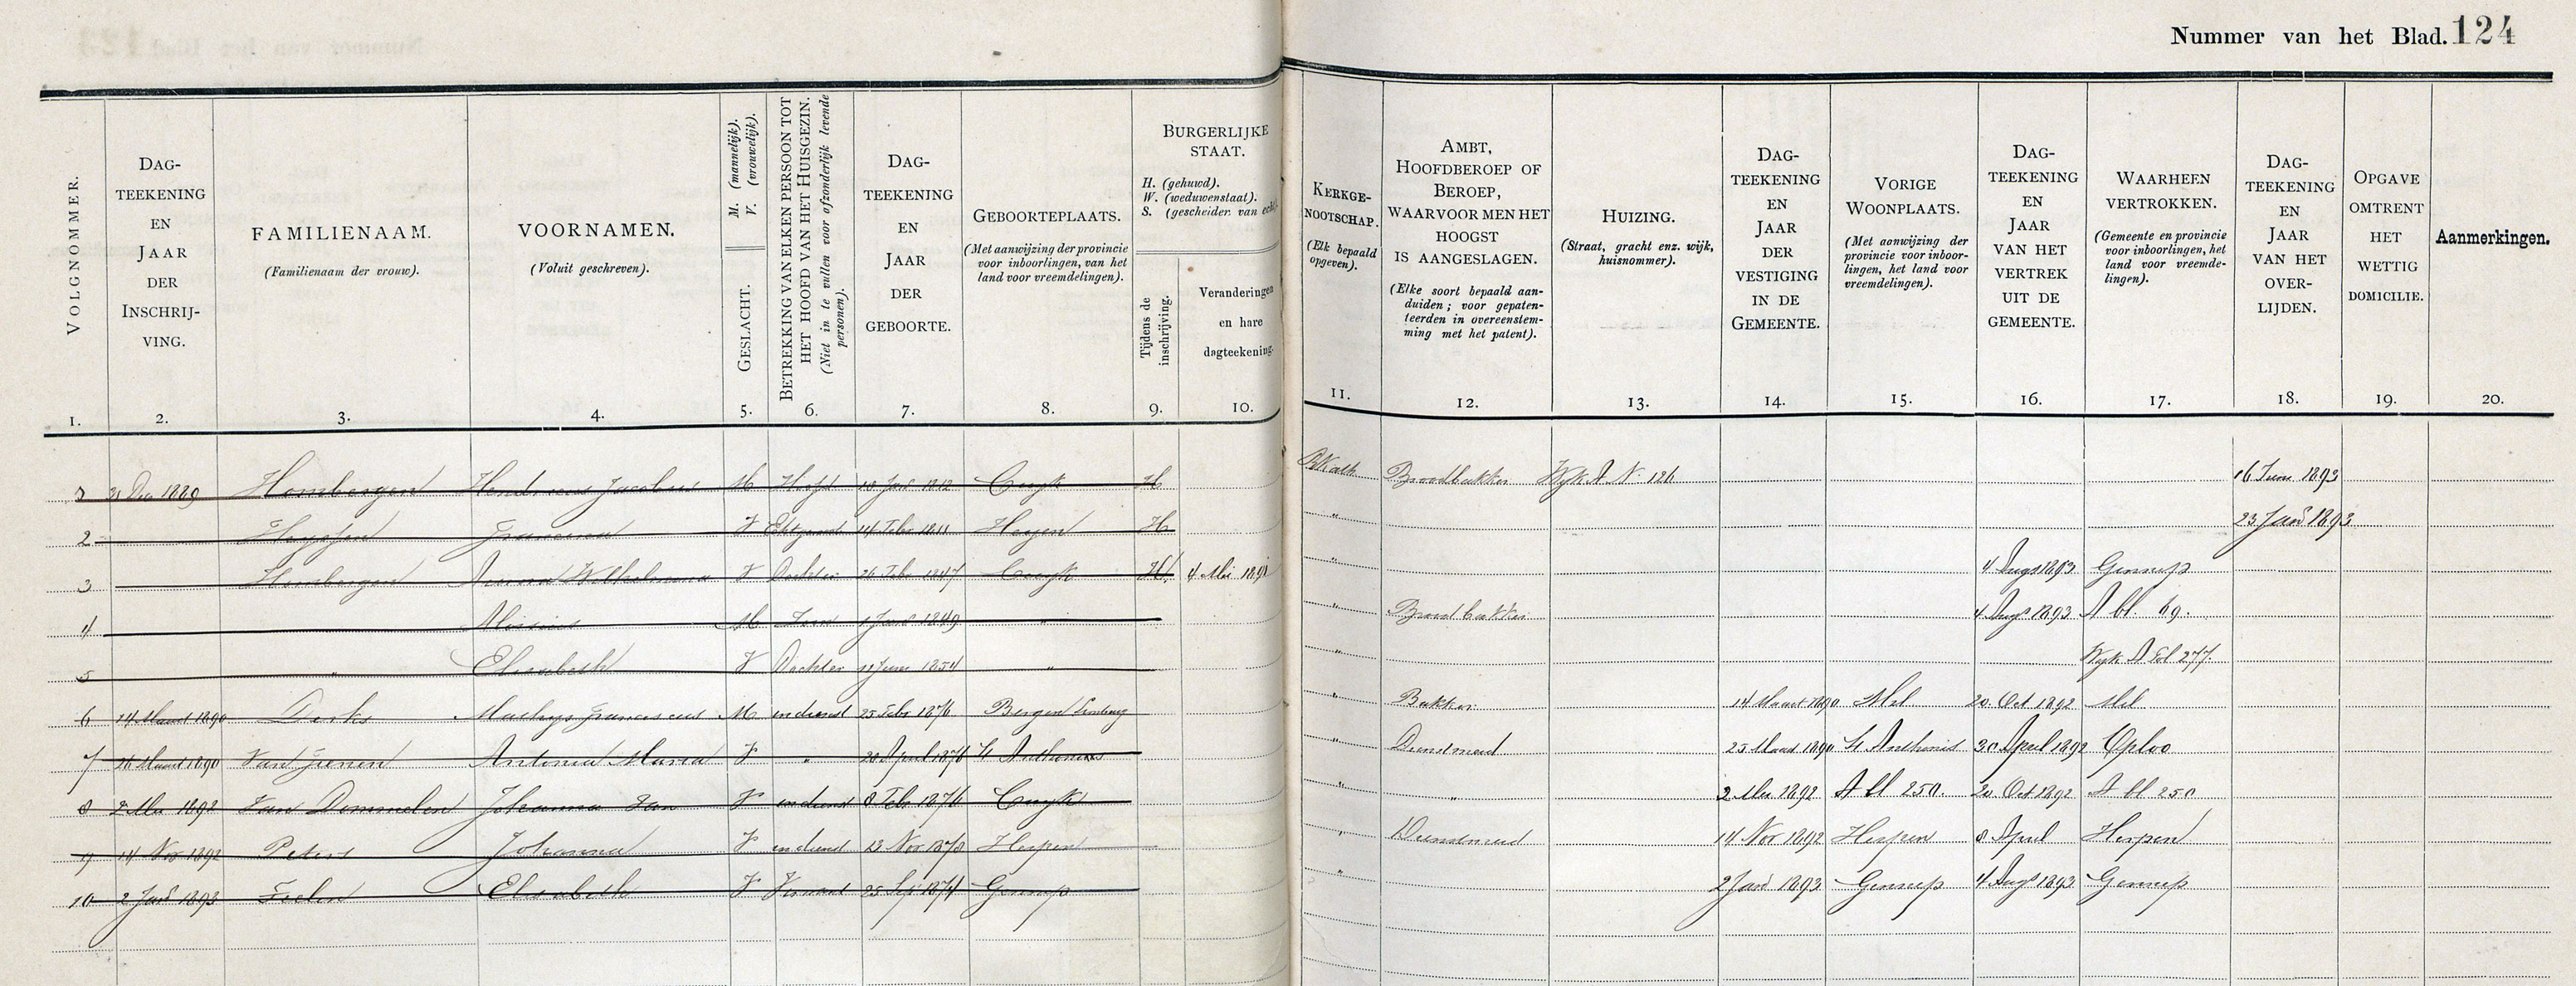 Nummer van het Blad. 124
VOLGNOMMER.
DAG-
TEEKENING
EN
JAAR
DER
INSCHRIJ-
VING.
FAMILIENAAM.
(Familienaam der vrouw).
VOORNAMEN.
(Voluit geschreven).
M. (mannelijk).
V. (vrouwelijk).
GESLACHT.
BETREKKING VAN ELKEN PERSOON TOT
HET HOOFD VAN HET HUISGEZIN.
(Niet in te vullen voor afzonderlijk levende
personen).
DAG-
TEEKENING
EN
JAAR
DER
GEBOORTE.
GEBOORTEPLAATS.
(Met aanwijzing der provincie
voor inboorlingen, van het
land voor vreemdelingen).
BURGERLIJKE
STAAT.
H. (gehuwd).
W. (weduwenstaat).
S. (gescheiden van echt).
Tijdens de
inschrijving.
Veranderingen
en hare
dagteekening.
KERKGE-
NOOTSCHAP.
(Elk bepaald
opgeven).
AMBT,
HOOFDBEROEP OF
BEROEP,
WAARVOOR MEN HET
HOOGST
IS AANGESLAGEN.
(Elke soort bepaald aan-
duiden; voor gepaten-
teerden in overeenstem-
ming met het patent).
HUIZING.
(Straat, gracht enz. wijk,
huisnommer).
DAG-
TEEKENING
EN
JAAR
DER
VESTIGING
IN DE
GEMEENTE.
VORIGE
WOONPLAATS.
(Met aanwijzing der
provincie voor inboor-
lingen, het land voor
vreemdelingen).
DAG-
TEEKENING
EN
JAAR
VAN HET
VERTREK
UIT DE
GEMEENTE.
WAARHEEN
VERTROKKEN.
(Gemeente en provincie
voor inboorlingen, het
land voor vreemde-
lingen).
DAG-
TEEKENING
EN
JAAR
VAN HET
OVER-
LIJDEN.
OPGAVE
OMTRENT
HET
WETTIG
DOMICILIE.
Aanmerkingen.
1. 2. 3. 4. 5. 6. 7. 8. 9. 10. 11. 12. 13. 14. 15. 16. 17. 18. 19. 20.
31 Dec 1889 Hombergen Hendricus Jacobus M Hoofd 1812 Cuyk H R Kath Broodbakker Wyk A N. 126 16 Juni 1893
2 Francisca V Echtgenoot 14 Febr 1811 Heyen H " 23 Jan 1893
3 Hombergen Anna Wilhelmina V Dochter 26 Febr 1847 Cuyk H 4 Mei 1891 " 4 Aug 1893 Gennep
4 Aloisius M Zoon 1 1849 " " Broodbakker 4 Aug 1893 A bl. 69.
5 " Elisabeth V Dochter 11 Juni 1854 " " Wyk A Fol 277.
6 14 Maart 1890 Derks Mathys Franciscus M indienst 25 Febr 1876 Bergen Limburg " Bakker 14 Maart 1890 Mil 20 Oct 1892 Mil
7 26 Maart 1890 Antonia Maria V " 20 April 1876 St Anthonis " Dienstmeid 25 Maart 1890 St Anthonis 30 April 1892 Oploo
8 2 Mei 1892 Van Dommelen Johanna V indienst 8 Febr 1876 Cuyk " " 2 Mei 1892 A bl 250. 20 Oct 1892 A bl 250
9 14 Nov 1892 Peters Johanna V indienst 13 Nov 1878 Herpen " Dienstmeid 14 Nov 1892 Herpen 8 April Herpen
10 2 Jan 1893 Elisabeth V 25 Sep 1874 Gennep " 2 Jan 1893 Gennep 4 Aug 1893 Gennep